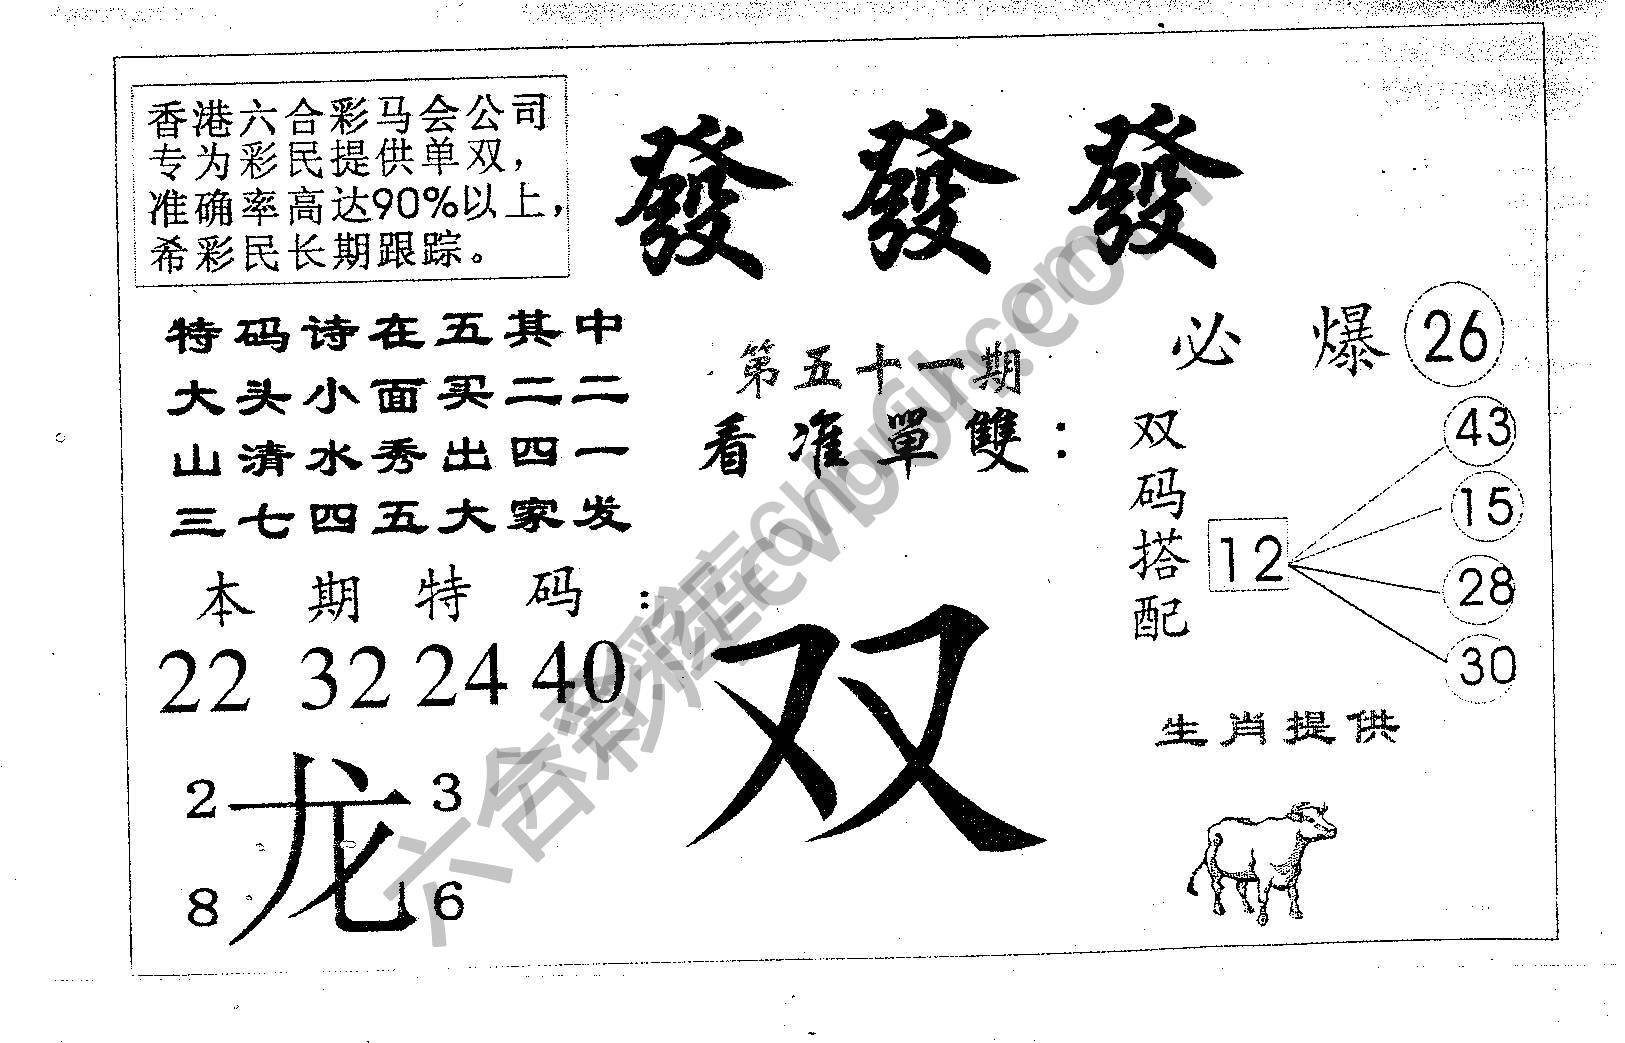 香港六合彩马会公司
专为彩民提供单双，
准确率高达90%以上，
希彩民长期跟踪。
發發發
特码诗在五其中
大头小面买二二
山清水秀出四一
三七四五大家发
第五十一期
看准單雙：
必爆 26
双码搭配
12
43
15
28
30
本期特码：
22 32 24 40
双
生肖提供
2 3
龙
8 6